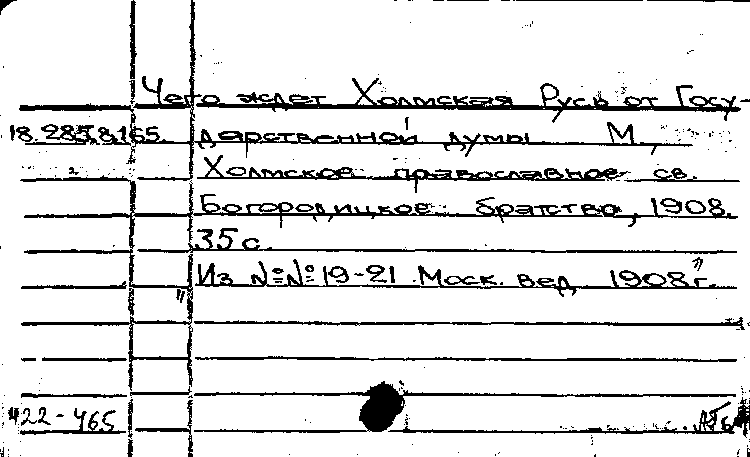 Чего ждет Холмская Русь от Госу-
18.285.8.165. дарственной думы М.,
Холмское православное св.
Богородицкое братство, 1908.
35 с.
Из №№ 19-21 „Моск. вед. 1908 г."
422-465